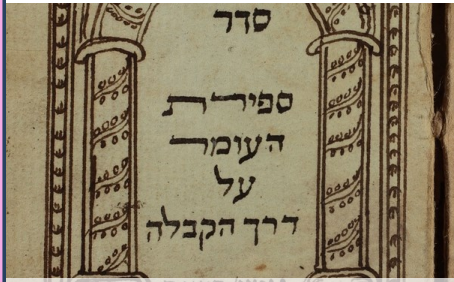 סדר
ספירת
העומר
על
דרך הקבלה